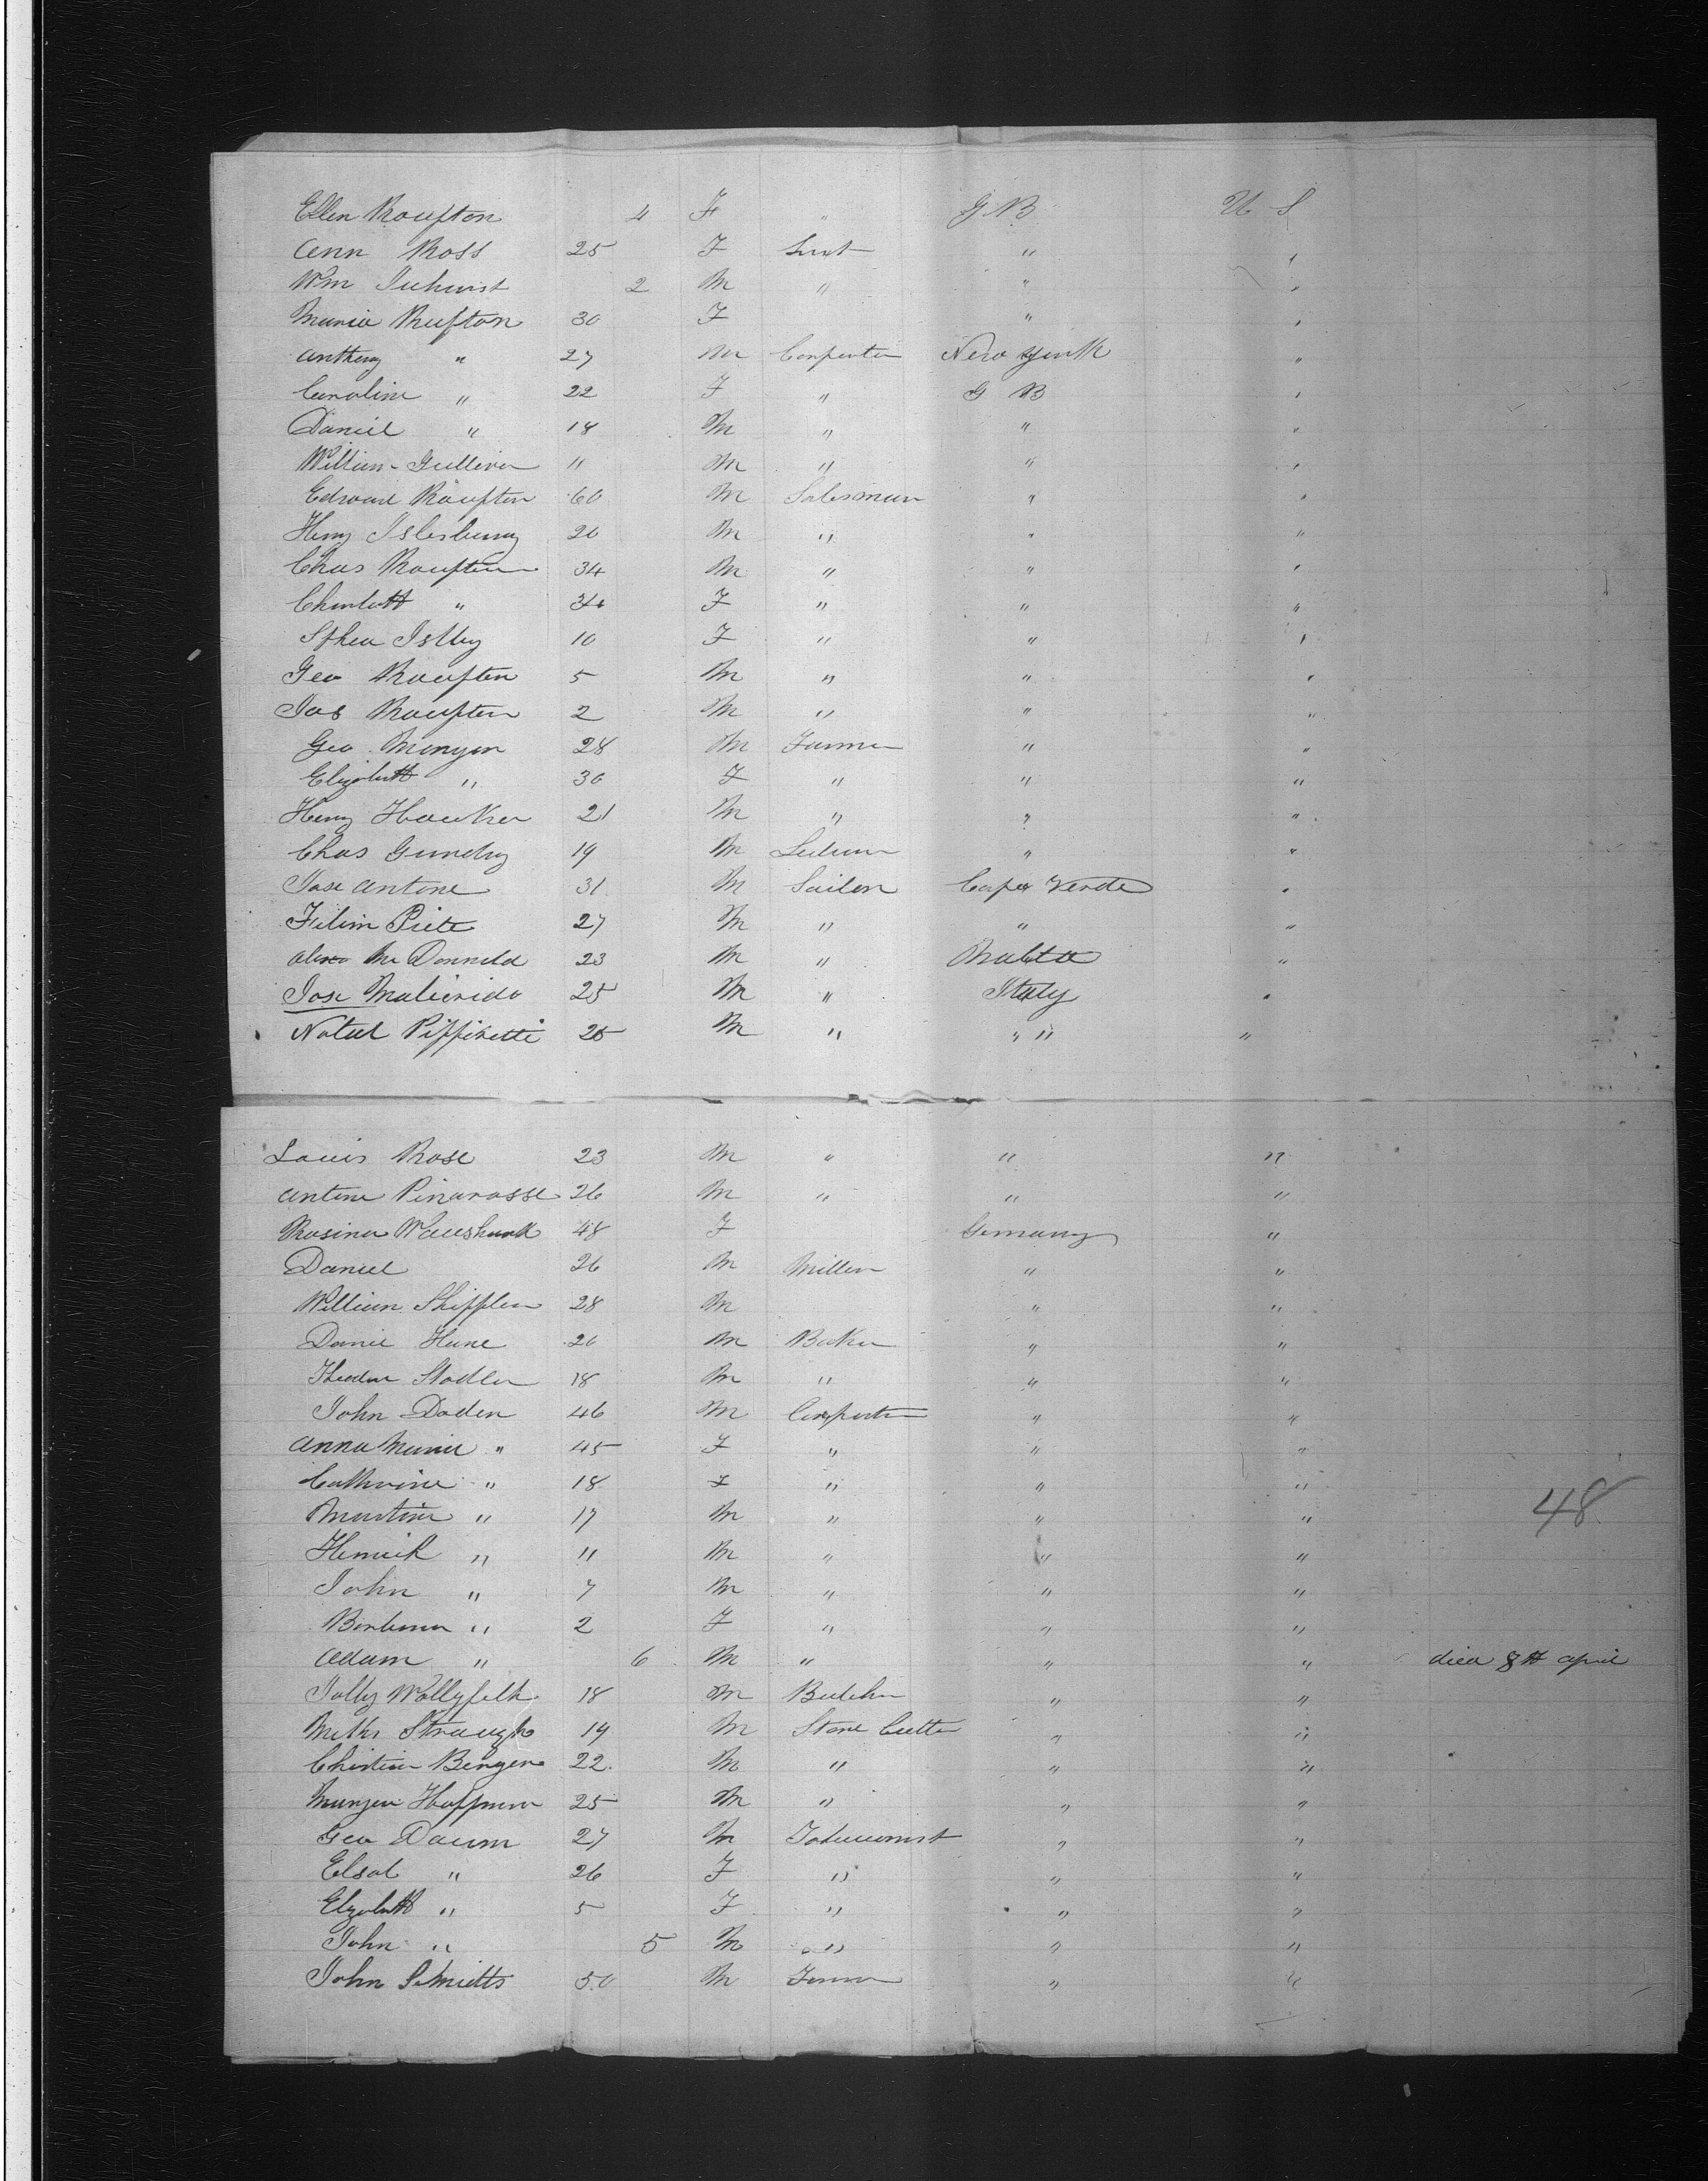 Ellen Roufton 4 F " G B U S
Ann Ross 25 F " "
Wm 2 M " " "
Maria Rufton 30 F " "
Anthony " 27 M Carpenter New York "
Caroline " 22 F " G B "
Daniel " 18 M " " "
William Gulliver 11 M " " "
Edward Roufton 60 M Salesman " "
Henry Islesbury 20 M " " "
Chas Roufton 34 M " " "
Charlott " 34 F " " "
10 F " " "
Geo Roufton 5 M " " "
Jas Roufton 2 M " " "
Geo Monyon 28 M Farmer " "
Elizabeth " 30 F " " "
Henry Hawker 21 M " " "
Chas Gundry 19 M " "
Jose Antone 31 M Sailor Cape Verde "
Filim Piete 27 M " " "
Alexo McDonneld 23 M " Malta "
Jose 25 M " Italy "
Natal Piffiretti 25 M " " " "
Louis Rose 23 M " " "
Antone Pinarosse 26 M " " "
Rosina 48 F Germany "
Daniel 26 M Miller " "
William Shifflen 28 M " "
Daniel Hane 20 M Baker " "
Theodor Stadler 18 M " " "
John Doden 46 M Carpenter " "
Anna Maria " 45 F " " "
Cathrine " 18 F " " "
48
Martin " 17 M " " "
Henrich " 11 M " " "
John " 7 M " " "
Barbara " 2 F " " "
Adam " 6 M " " " died 8th April
Wollyfelh 18 M Butcher " "
Straugh 19 M Stone Cutter " "
Christian Benger 22 M " " "
Hoffman 25 M " " "
Geo Daum 27 M Tobacconist " "
Elsal " 26 F " " "
Elzabeth " 5 F " " "
John " 5 M " " "
John Schmitts 50 M Farmer " "